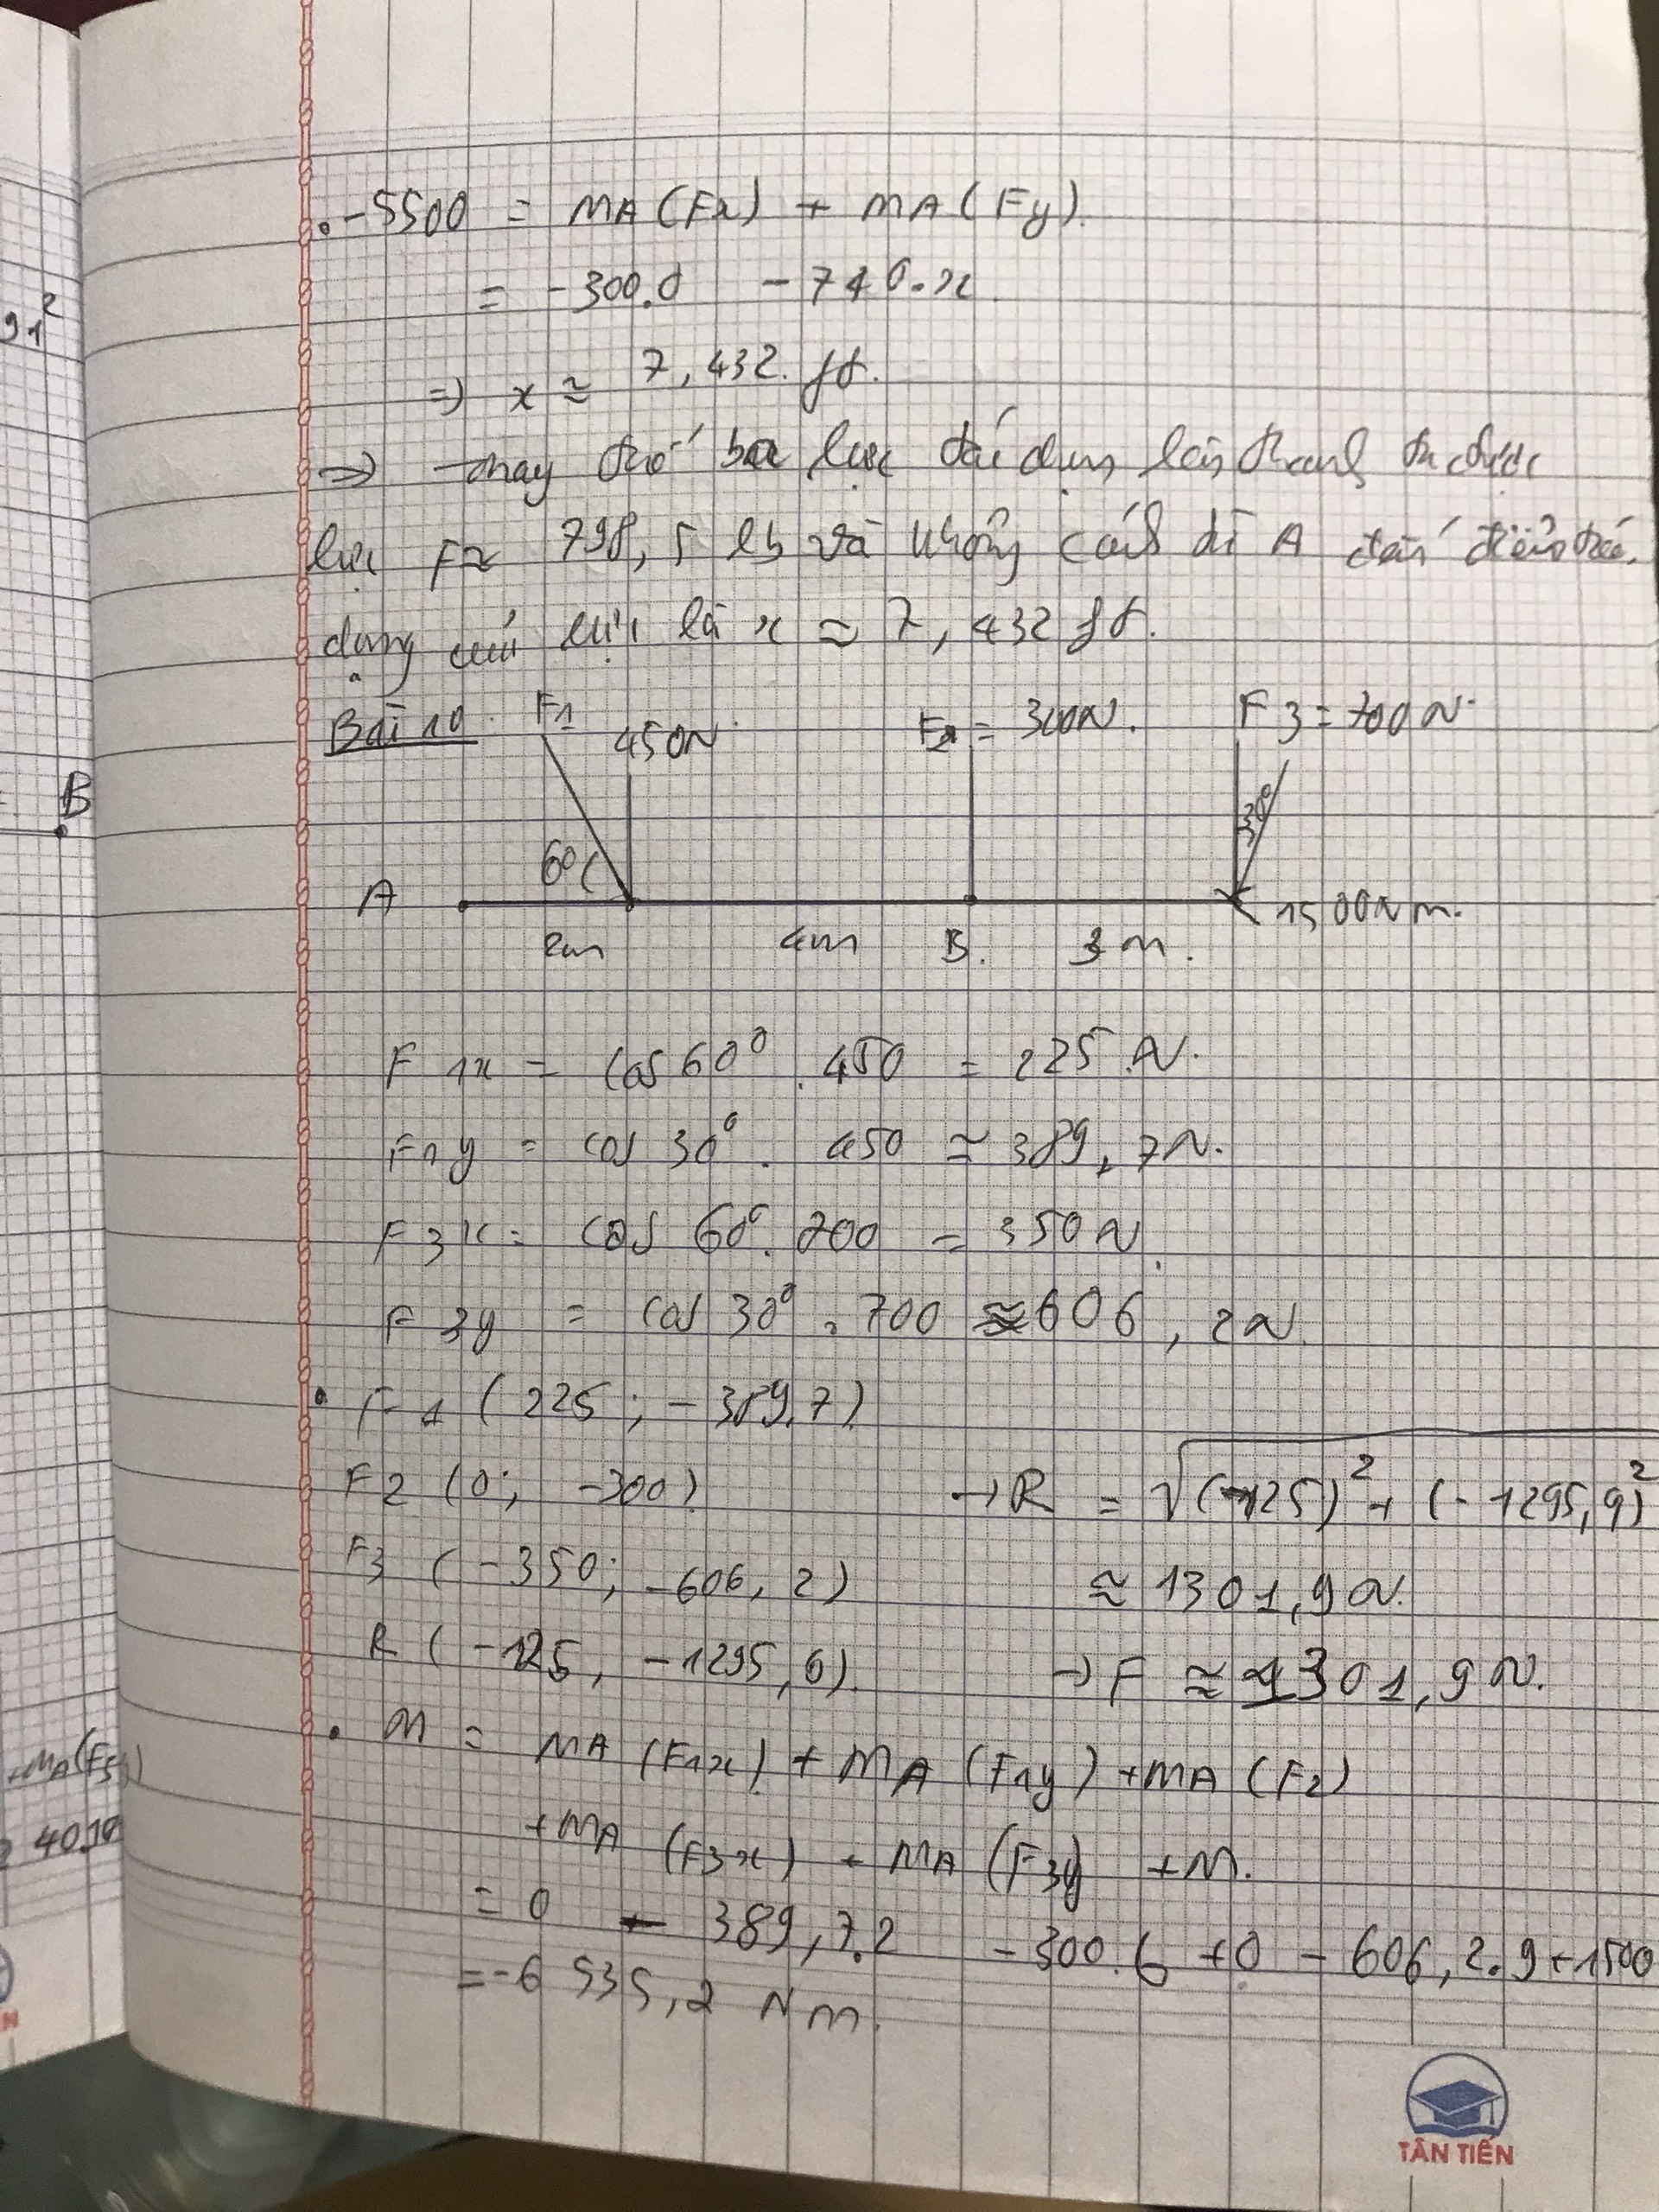 91²
B
+MA(F3y)
. -5500 = MA(Fx) + MA(Fy).
= -300.0 - 740.x
=> x ≈ 7,432. ft.
=> thay lực lên thanh được
lực F≈ 798,5 lb và không cách từ A đến điểm
dụng lực là x ≈ 7,432 ft.
Bài 10. F1 450N. F2 = 300N. F3 = 700N.
60 30°
A 1500Nm.
2m 4m B. 3 m.
F1x = cos 60° . 450 = 225 N.
F1y = cos 30° . 450 ≈ 389,7N.
F3x = cos 60°. 700 = 350N.
F3y = cos 30° . 700 ≈ 606,2N.
• F1 (225; -389,7)
F2 (0; -300) → R = √(-125)² + (-1295,9)²
F3 (-350; -606,2) ≈ 1301,9N.
R (-125, -1295,9). → F ≈ 1301,9N.
• M = MA (F1x) + MA (F1y) + MA (F2)
+ MA (F3x) + MA (F3y) + M.
= 0 - 389,7.2 - 300.6 + 0 - 606,2.9 + 1500
= -6535,2 Nm.
TÂN TIẾN